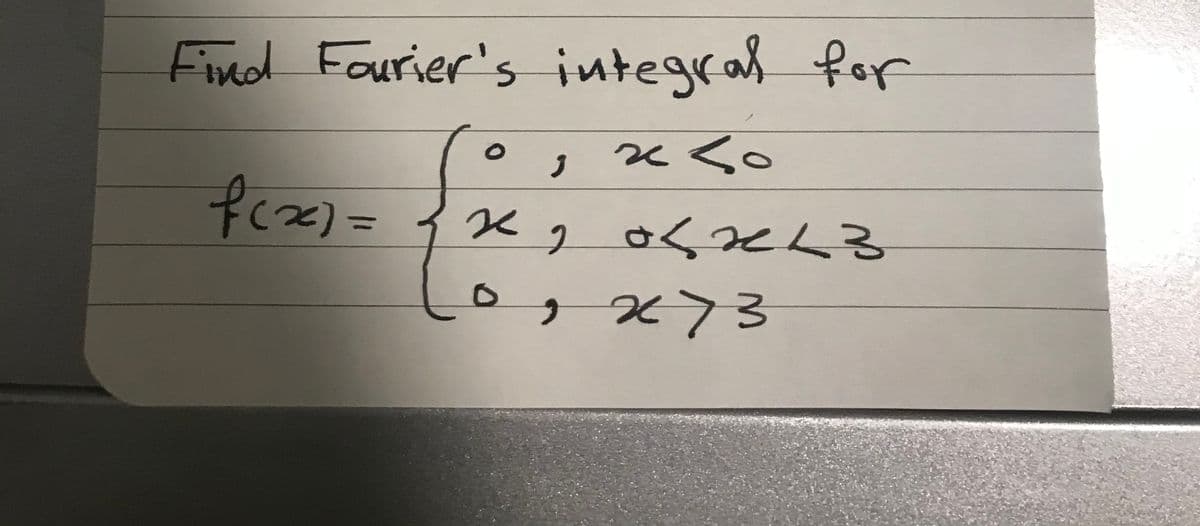 Find Fourier's integral for
0 , x < 0
f(x) = { x , 0 < x < 3
0 , x > 3